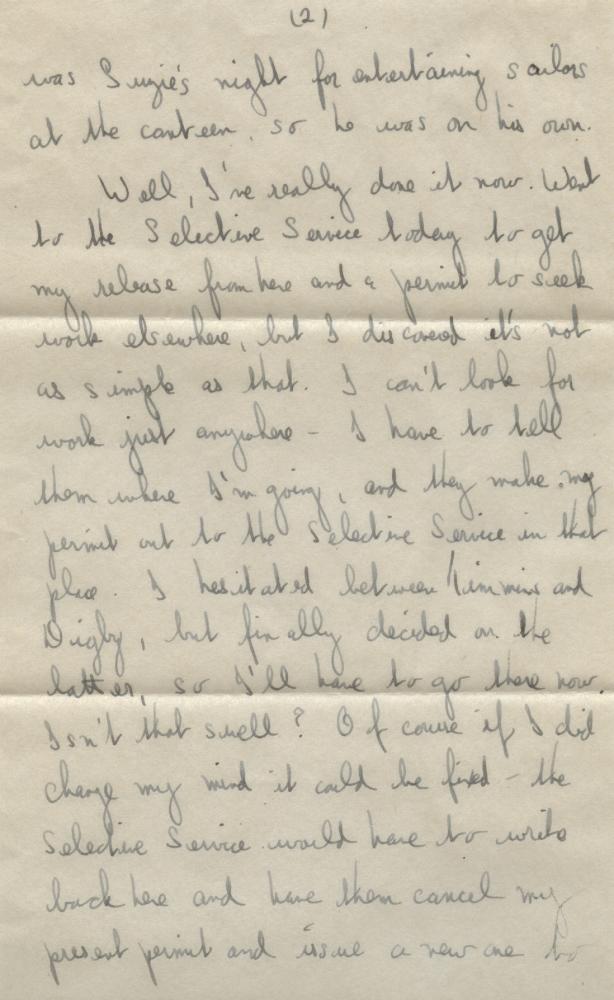 (2)
was Suzie's night for entertaining sailors
at the canteen, so he was on his own.
Well, I've really done it now. Went
to the Selective Service today to get
my release from here and a permit to seek
work elsewhere, but I discovered it's not
as simple as that. I can't look for
work just anywhere - I have to tell
them where I'm going, and they make my
permit out to the Selective Service in that
place. I hesitated between Timmins and
Digby, but finally decided on the
latter, so I'll have to go there now.
Isn't that swell? Of course if I did
change my mind it could be fixed - the
Selective Service would have to write
back here and have them cancel my
present permit and issue a new one to